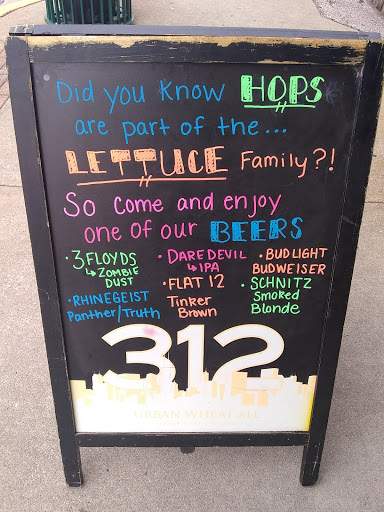 Did you Know HOPS
are part of the...
LETTUCE Family?!
So come and enjoy
one of our BEERS
• 3 FLOYDS
↳ ZOMBIE
DUST
• RHINEGEIST
Panther/Truth
• DAREDEVIL
↳ IPA
• FLAT 12
Tinker
Brown
• BUD LIGHT
BUDWEISER
• SCHNITZ
Smoked
Blonde
312
URBAN WHEAT ALE